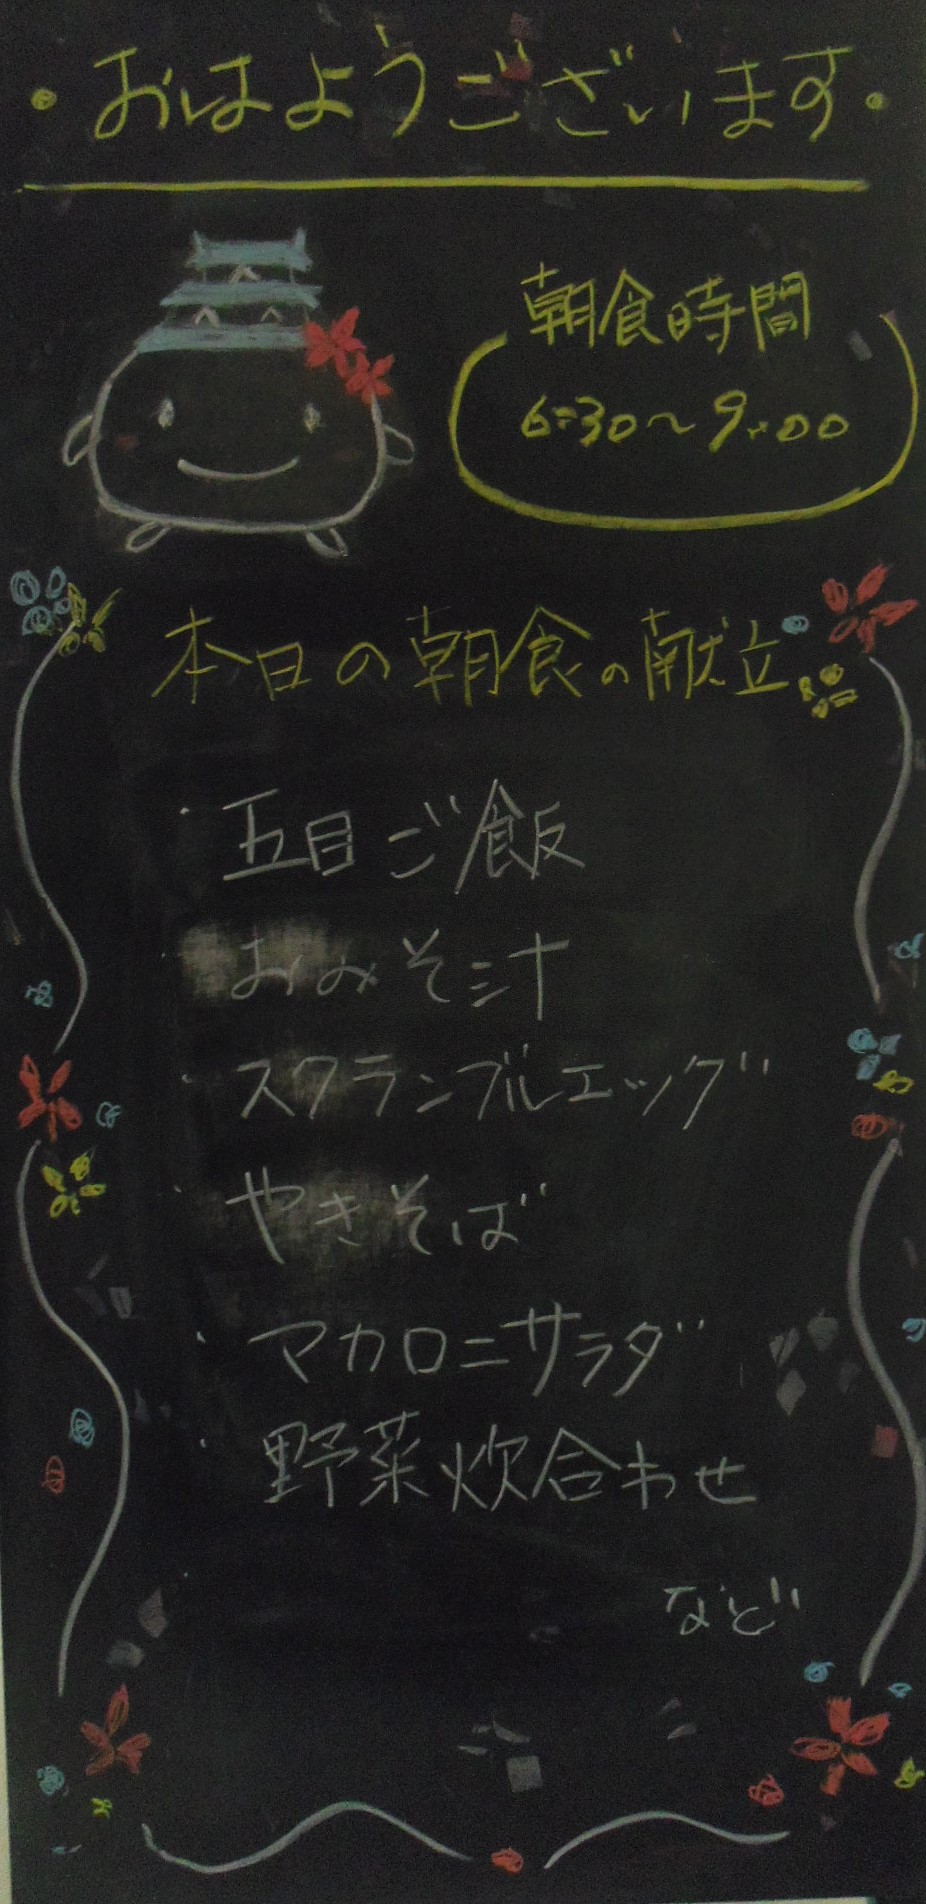 ・おはようございます・
朝食時間
6:30～9:00
本日の朝食の献立
・五目ご飯
おみそ汁
・スクランブルエッグ
・やきそば
・マカロニサラダ
・野菜炊合わせ
など